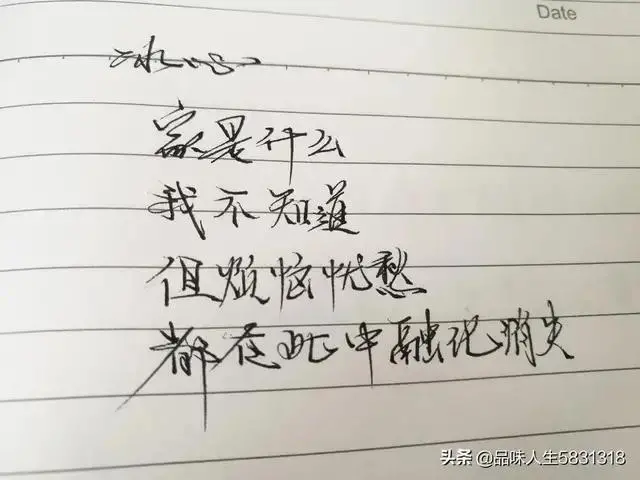 Date
冰心
家是什么
我不知道
但烦恼忧愁
都在此中融化消失
头条 @品味人生5831318